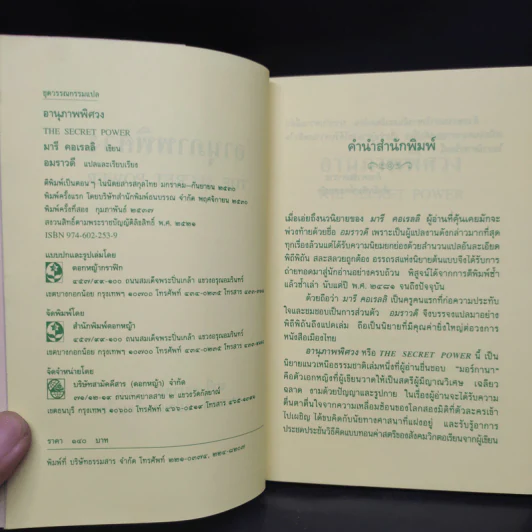 ชุดวรรณกรรมแปล
อานุภาพพิศวง
THE SECRET POWER
มารี คอเรลลี เขียน
อมราวดี แปลและเรียบเรียง
ตีพิมพ์เป็นตอนๆ ในนิตยสารสกุลไทย มกราคม-กันยายน ๒๕๓๐
พิมพ์ครั้งแรก โดยบริษัทสำนักพิมพ์อนบรรณ จำกัด พฤศจิกายน ๒๕๓๐
พิมพ์ครั้งที่สอง กุมภาพันธ์ ๒๕๓๗
สงวนลิขสิทธิ์ตามพระราชบัญญัติลิขสิทธิ์ พ.ศ. ๒๕๒๑
ISBN 974-602-255-9
แบบปกและรูปเล่มโดย
ดอกหญ้ากราฟิก
๔๕๗/๙๙-๑๐๐ ถนนสมเด็จพระปิ่นเกล้า แขวงอรุณอมรินทร์
เขตบางกอกน้อย กรุงเทพฯ ๑๐๗๐๐
จัดพิมพ์โดย
สำนักพิมพ์ดอกหญ้า
๔๕๗/๙๙-๑๐๐ ถนนสมเด็จพระปิ่นเกล้า แขวงอรุณอมรินทร์
เขตบางกอกน้อย กรุงเทพฯ ๑๐๗๐๐
จัดจำหน่ายโดย
บริษัทสามัคคีสาร (ดอกหญ้า) จำกัด
ถนนเทศบาลสาย ๒ แขวงวัดกัลยาณ์
เขตธนบุรี กรุงเทพฯ ๑๐๖๐๐
ราคา ๑๔๐ บาท
พิมพ์ที่ บริษัทธรรมสาร จำกัด
คำนำสำนักพิมพ์
เมื่อเอ่ยถึงนวนิยายของ มารี คอเรลลี ผู้อ่านที่คุ้นเคยมักจะ
พ่วงท้ายด้วยชื่อ อมราวดี เพราะเป็นผู้แปลงานดังกล่าวมากที่สุด
ทุกเรื่องล้วนแต่ได้รับความนิยมยกย่องด้วยสำนวนแปลอันละเอียด
พิถีพิถัน สละสลวยถูกต้อง อรรถรสแห่งนิยายต้นแบบจึงได้รับการ
ถ่ายทอดมาสู่นักอ่านอย่างครบถ้วน พิสูจน์ได้จากการตีพิมพ์ซ้ำ
แล้วซ้ำเล่า นับแต่ปี พ.ศ. ๒๔๘๑ จนถึงปัจจุบัน
ด้วยถือว่า มารี คอเรลลี เป็นครูคนแรกที่ก่อความประทับ
ใจและชมชอบเป็นการส่วนตัว อมราวดี จึงบรรจงแปลมาอย่าง
พิถีพิถันถึงแปดเล่ม ถือเป็นนิยายที่มีคุณค่ายิ่งใหญ่ต่อวงการ
หนังสือเมืองไทย
อานุภาพพิศวง หรือ THE SECRET POWER นี้ เป็น
นิยายแนวเหนือธรรมชาติเล่มหนึ่งที่ผู้อ่านชื่นชอบ "มอร์กานา"
คือตัวเอกหญิงที่ผู้เขียนวาดให้เป็นสตรีผู้มีญาณวิเศษ เฉลียว
ฉลาด งามด้วยปัญญาและรูปกาย ในเรื่องผู้อ่านจะได้รับความ
ตื่นตาตื่นใจจากความเหลื่อมซ้อนของโลกสองมิติที่ตัวละครเข้า
ไปเผชิญ ได้ขบคิดกับนัยทางศาสนาที่แฝงอยู่ และรับรู้อาการ
ประชดประชันวิธีคิดแบบทอนค่าสตรีของสังคมวิกตอเรียนจากผู้เขียน